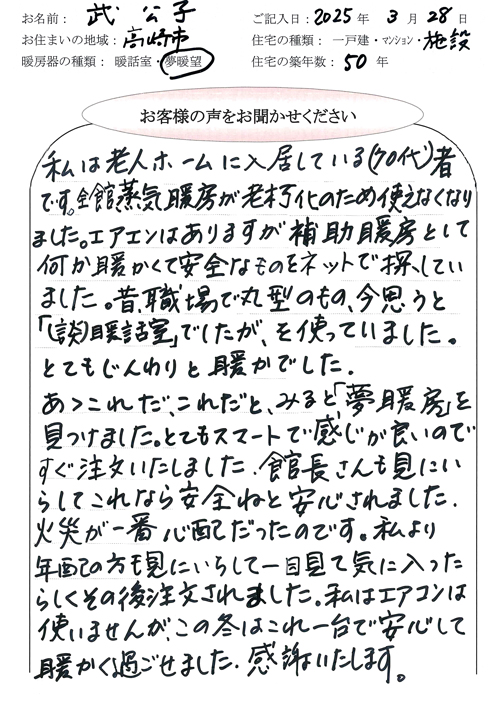 お名前： 武 公子
ご記入日：2025年 3月 28日
お住まいの地域：高崎市
住宅の種類： 一戸建・マンション・施設
暖房器の種類： 暖話室・夢暖望
住宅の築年数：50 年
お客様の声をお聞かせください
私は老人ホームに入居している(70代)者
です。全館蒸気暖房が老朽化のため使えなくなり
ました。エアエンはありますが補助暖房として
何か暖かくて安全なものをネットで探してい
ました。昔、職場で丸型のもの、今思うと
「(談)暖話室」でしたが、を使っていました。
とてもじんわりと暖かでした.
あゝこれだ、これだと、みると「夢暖房」を
見つけました。とてもスマートで感じが良いので
すぐ注文いたしました. 館長さんも見にい
らしてこれなら安全ねと安心されました.
火災が一番心配だったのです。私より
年配の方も見にいらして一目見て気に入った
らしくその後注文されました。私はエアコンは
使いませんが、この冬はこれ一台で安心して
暖かく過ごせました. 感謝いたします。